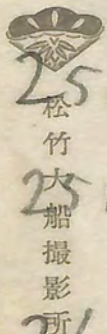 25
松竹大船撮影所
25